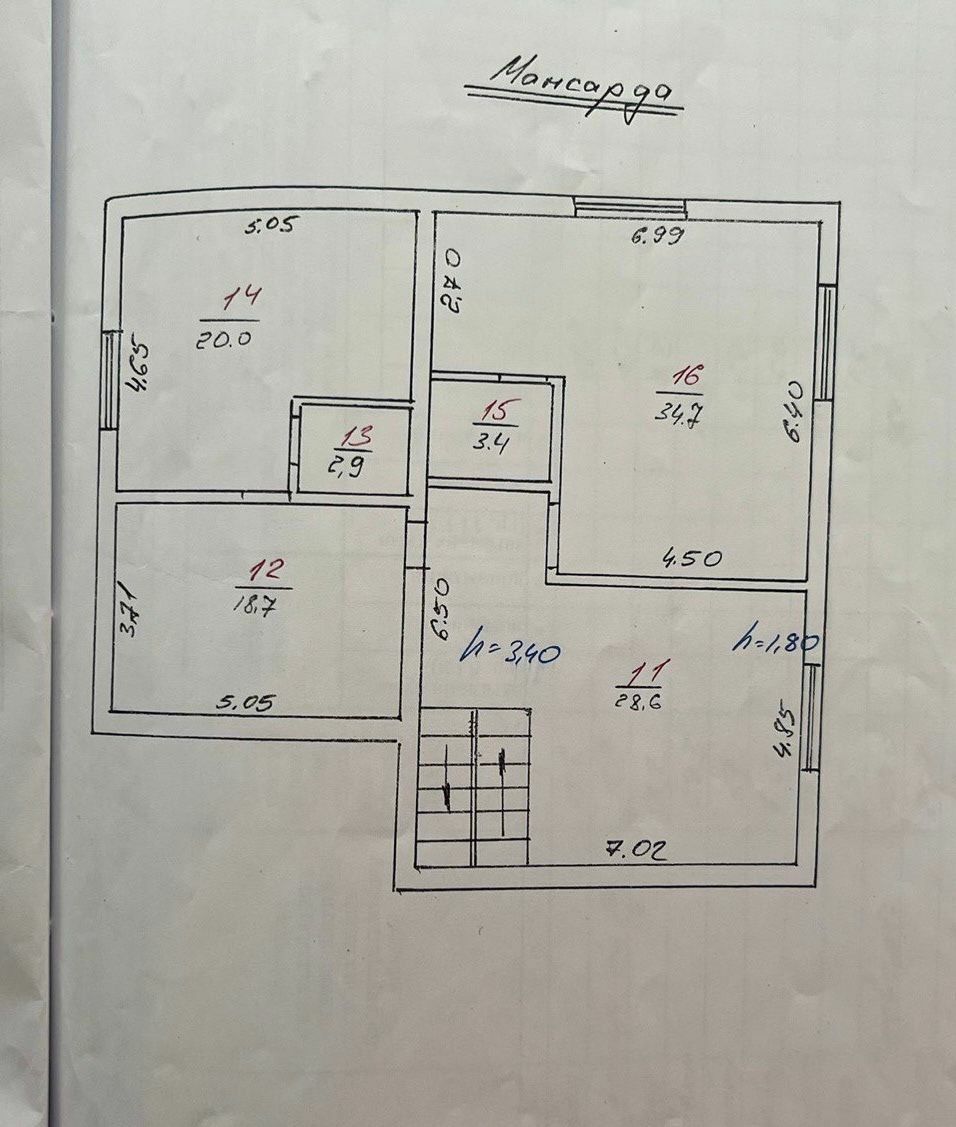 Мансарда
5.05
6.99
2.70
14
20.0
4.65
16
34.7
6.40
15
3.4
13
2,9
4.50
12
18,7
3.71
6.50
h=3,40
h=1,80
11
28,6
5.05
4.85
7.02